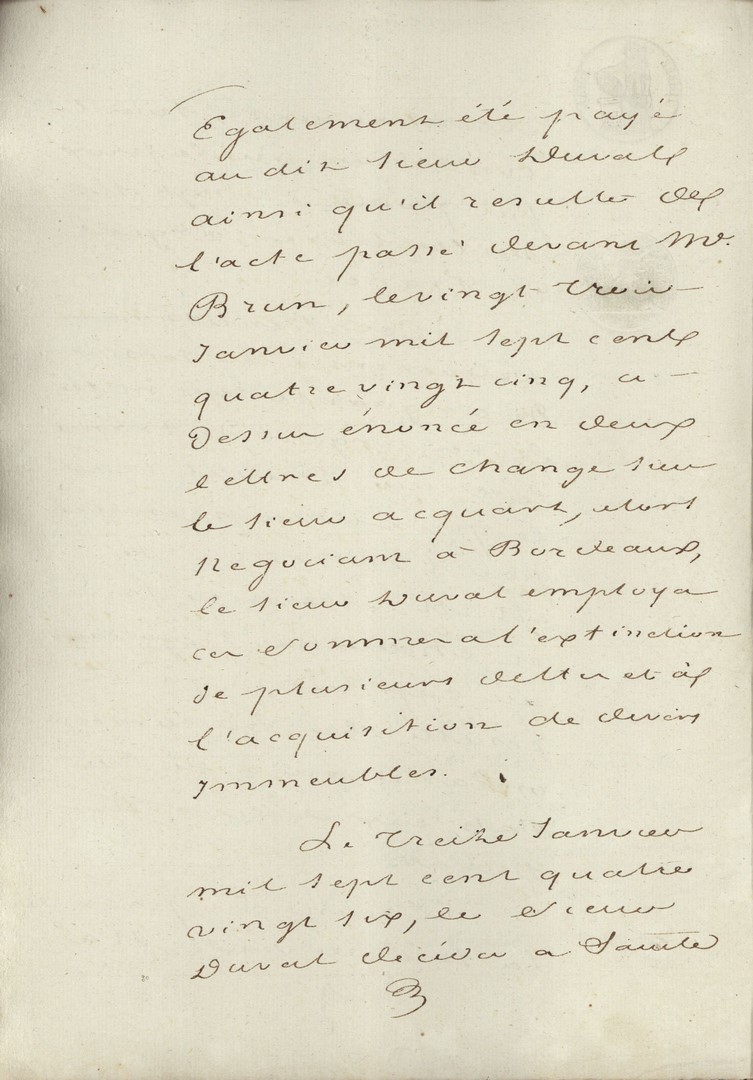 Egalement été payé
au dit sieur Duval
ainsi qu'il resulte de
l'acte passé devant Me.
Brun, le vingt trois
Janvier mil sept cent
quatre vingt cinq, ci-
Dessus énoncé en deux
lettres de change sur
le sieur acquart, alors
Negociant à Bordeaux,
le sieur Duval employa
ces sommes a l'extinction
de plusieurs dettes et à
l'acquisition de divers
Immeubles.
Le treize Janvier
mil sept cent quatre
vingt six, le sieur
Duval déceda a Sainte